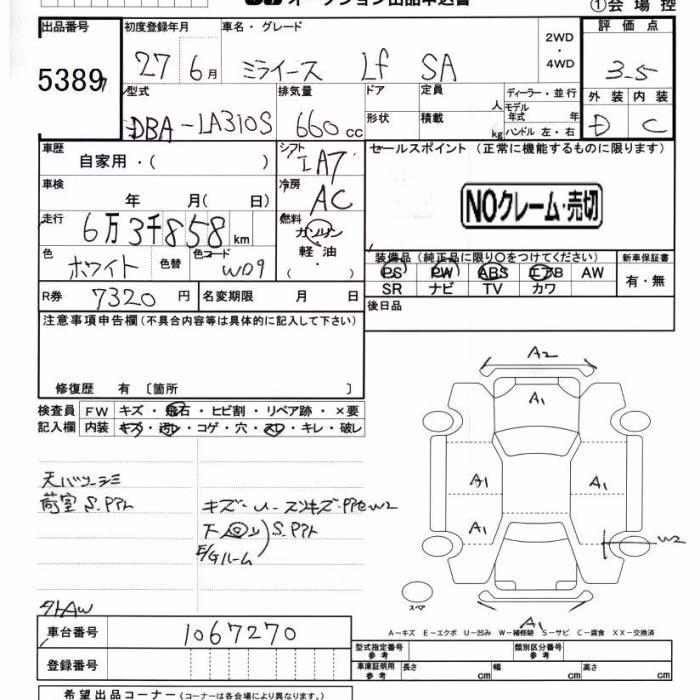 オークション出品申込書
①会場控
出品番号 初度登録年月 車名・グレード 評価点
5389 27 6月 ミライース Lf SA 2WD・4WD 3.5
型式 排気量 ドア 定員 人 ディーラー・並行 外装 内装
DBA-LA310S 660cc 形状 積載 kg モデル年式 年 ハンドル 左・右 D C
車歴 シフト セールスポイント (正常に機能するものに限ります)
自家用・( ) IA7
車検 年 月( 日) 冷房 AC
NOクレーム・売切
走行 6万3千858km 燃料 ガソリン
軽油・( )
色 ホワイト 色替 色コード W09
装備品(純正品に限り○をつけてください) 新車保証書
PS PW ABS エアB AW 有・無
SR ナビ TV カワ
R券 7320円 名変期限 月 日 後日品
注意事項申告欄(不具合内容等は具体的に記入して下さい)
修復歴 有 〔箇所 〕
検査員 FW キズ・飛石・ヒビ割・リペア跡・×要
記入欄 内装 キズ・汚レ・コゲ・穴・スレ・キレ・破レ
A2
A1
A1 A1
A1 W2
A1
スペア
荷室 S.
キズ・U・
下
E/Gルーム
外AW
A-キズ E-エクボ U-凹み W-補修跡 S-サビ C-腐食 XX-交換済
車台番号 1067270
型式指定番号 参考 類別区分番号 参考
登録番号 車庫証明用 参考 長さ cm 幅 cm 高さ cm
希望出品コーナー(コーナーは各会場により異なります。)